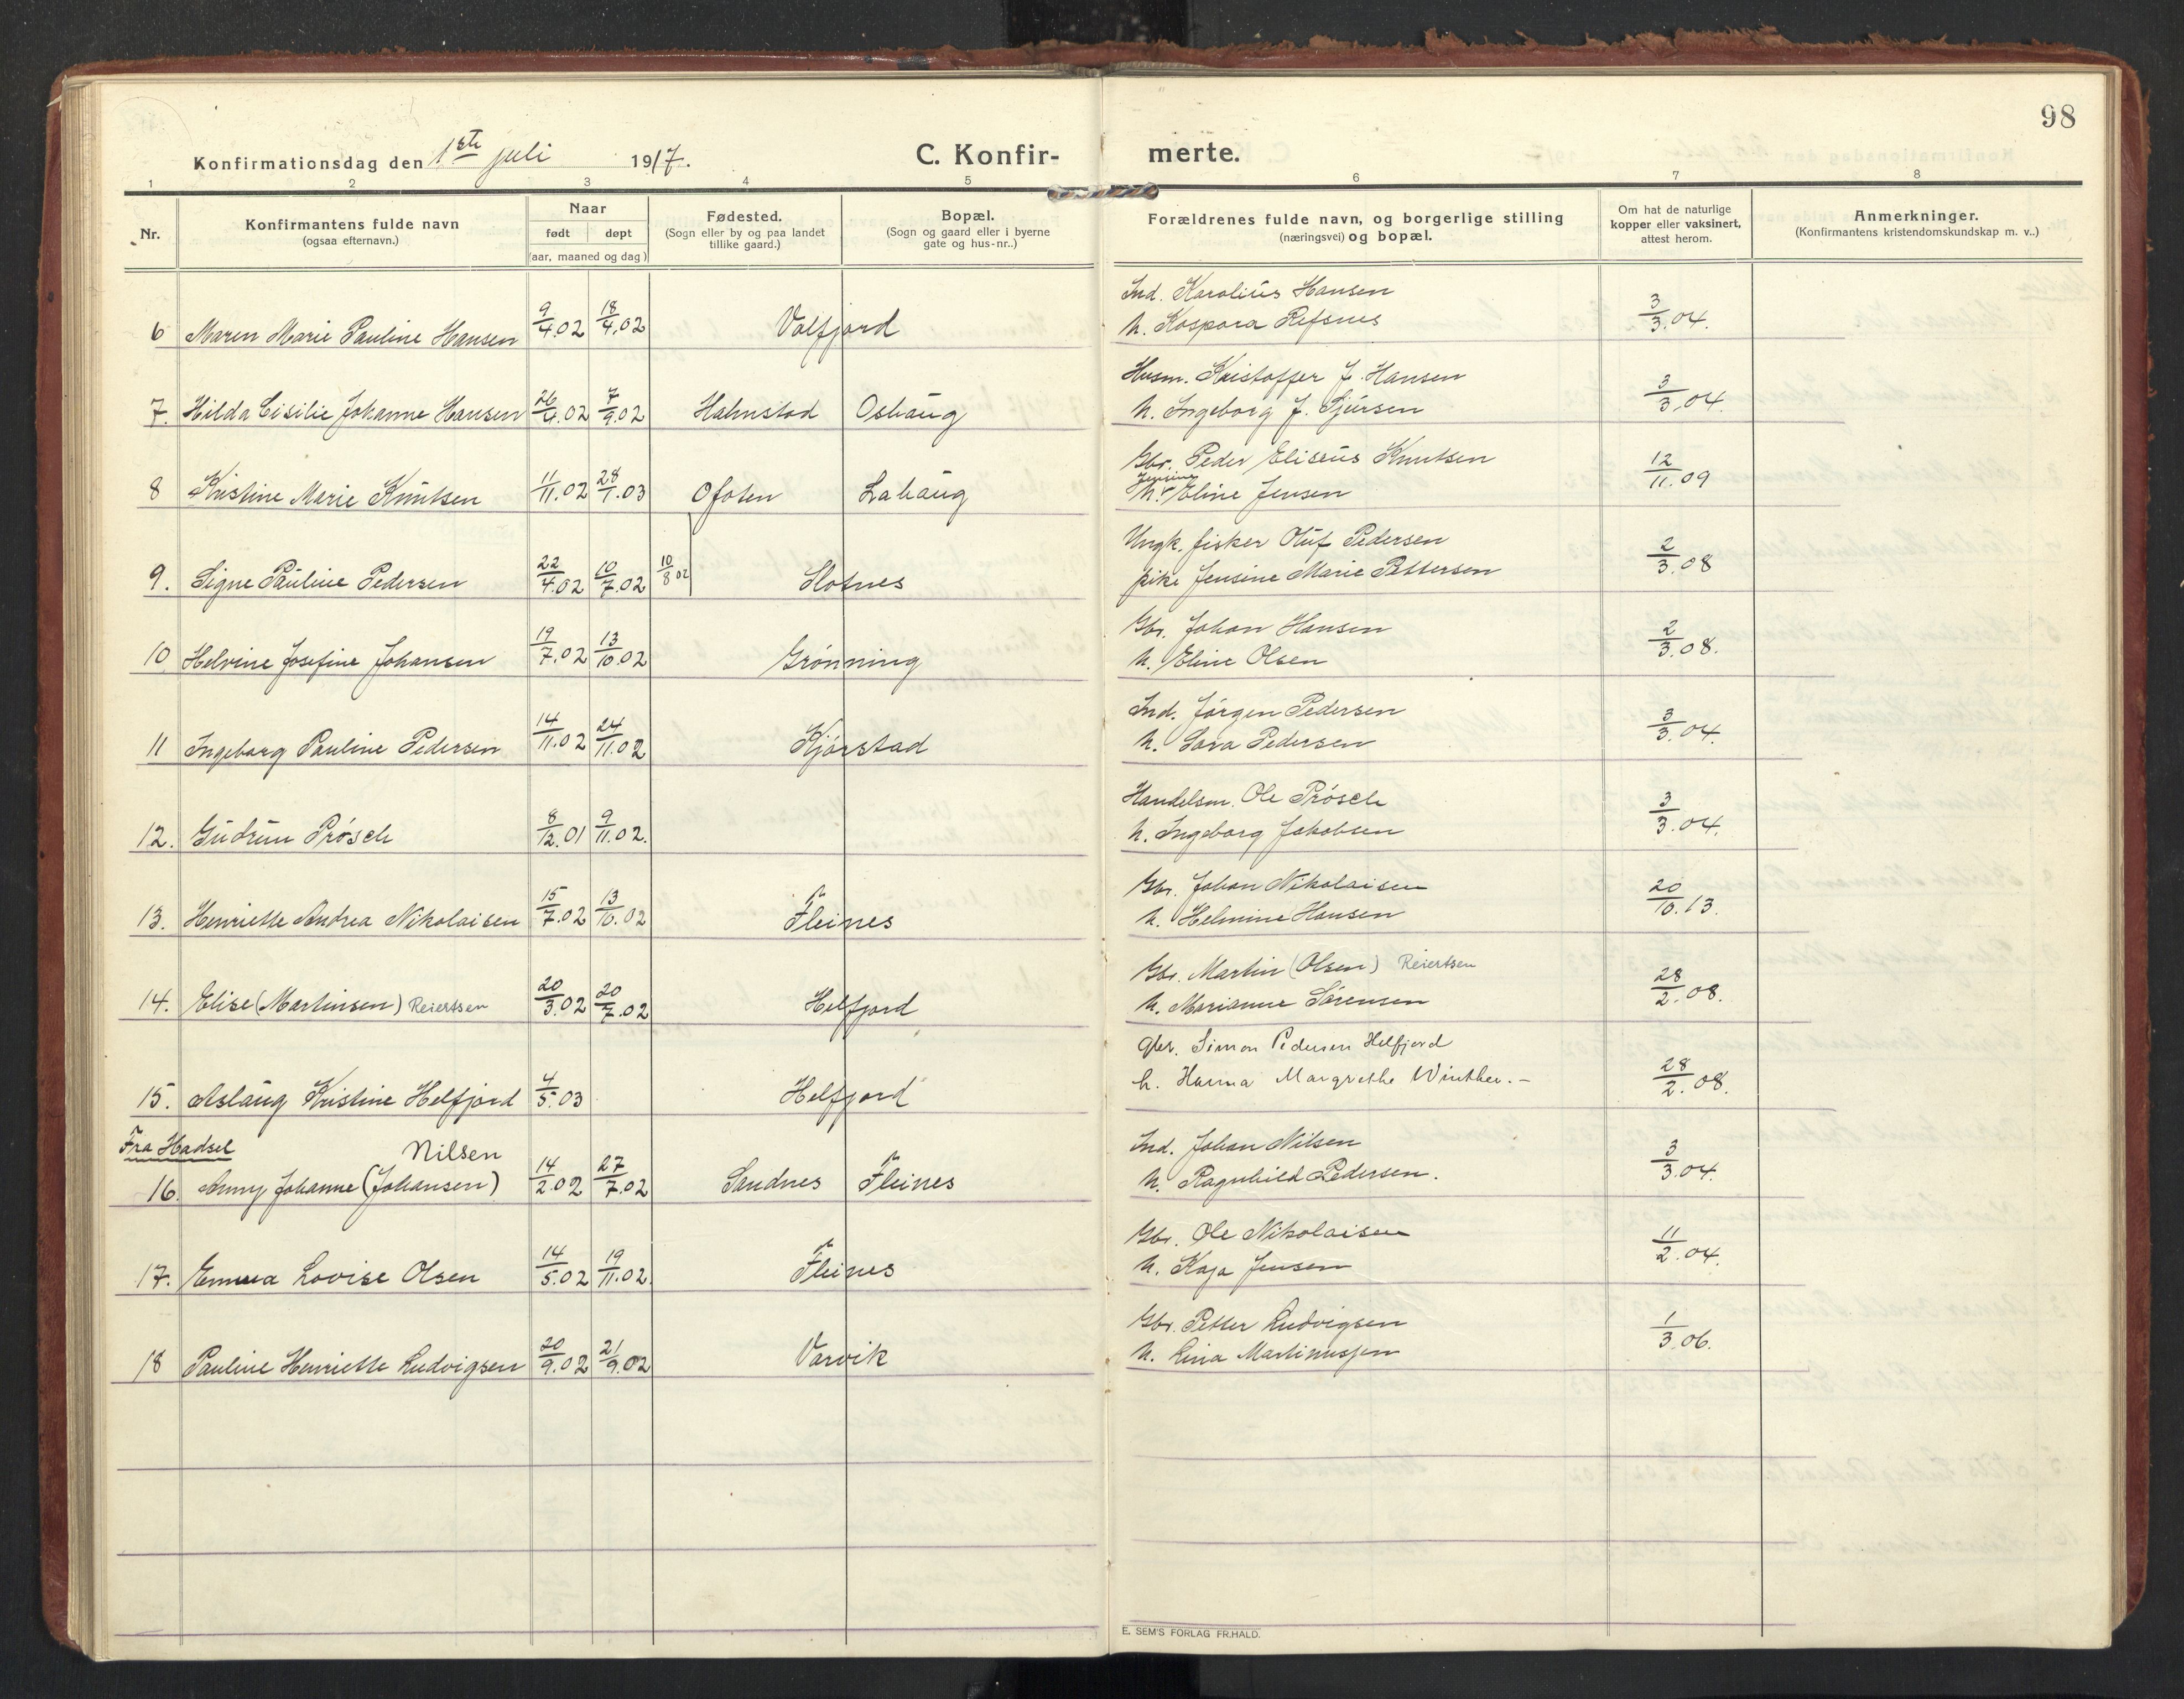 98
Konfirmationsdag den 1ste juli 1917.
C. Konfir- merte.
1 2 3 4 5 6 7 8
Nr.
Konfirmantens fulde navn
(ogsaa efternavn.)
Naar
født døpt
(aar, maaned og dag)
Fødested.
(Sogn eller by og paa landet
tillike gaard.)
Bopæl.
(Sogn og gaard eller i byerne
gate og hus-nr..)
Forældrenes fulde navn, og borgerlige stilling
(næringsvei) og bopæl.
Om hat de naturlige
kopper eller vaksinert,
attest herom.
Anmerkninger.
(Konfirmantens kristendomskundskap m. v..)
Ind. Karolius Hansen
6 Maren Marie Pauline Hansen 9/4.02 18/4.02 Valfjord h. Kaspara Refsnes 3/3.04.
Husm. Kristoffer J. Hansen
7. Hilda Cisilie Johanne Hansen 26/4.02 7/9.02 Halmstad Oshaug h. Ingeborg J. Sjursen 3/3.04.
Gbr. Peder Eliseus Knutsen
Jensine
8 Kristine Marie Knutsen 11/11.02 28/1.03 Ofoten Lahaug h. Eline Jensen 12/11.09
Ungk. fisker Oluf Pedersen
9. Signe Pauline Pedersen 22/4.02 10/7.02 10/8 02 Slotnes pike Jensine Marie Pettersen 2/3.08
Gbr. Johan Hansen
10 Helvine Josefine Johansen 19/7.02 13/10.02 Grønning h. Eline Olsen 2/3.08.
Ind. Jørgen Pedersen
11 Ingeborg Pauline Pedersen 14/11.02 24/11.02 Kjørstad h. Sara Pedersen 3/3.04.
Handelsm. Ole Prøsch
12. Gudrun Prøsch 8/12.01 9/11.02. h. Ingeborg Jakobsen 3/3.04.
Gbr. Johan Nikolaisen
13. Henriette Andrea Nikolaisen 15/7.02 13/10.02 Fleines h. Helmine Hansen 20/10.13.
Gbr. Martin (Olsen) Reiertsen
14. Elise (Martinsen) Reiertsen 20/3.02 20/7.02 Helfjord h. Marianne Sørensen 28/2.08.
Gbr. Simon Pedersen Helfjord
15. Aslaug Kristine Helfjord 4/5.03 Helfjord h. Hanna Margrethe Winther.- 28/2.08.
Fra Hadsel Nilsen Ind. Johan Nilsen
16. Anny Johanne (Johansen) 14/2.02 27/7.02 Sandnes Fleines h. Ragnhild Pedersen. 3/3.04.
Gbr. Ole Nikolaisen
17. Emma Lovise Olsen 14/5.02 19/11.02. Fleines h. Kaja Jensen 11/2.04.
Gbr. Petter Ludvigsen
18 Pauline Henriette Ludvigsen 20/9.02 21/9.02 Varvik h. Lina Martinussen 1/3.06.
E. SEM'S FORLAG FR.HALD.